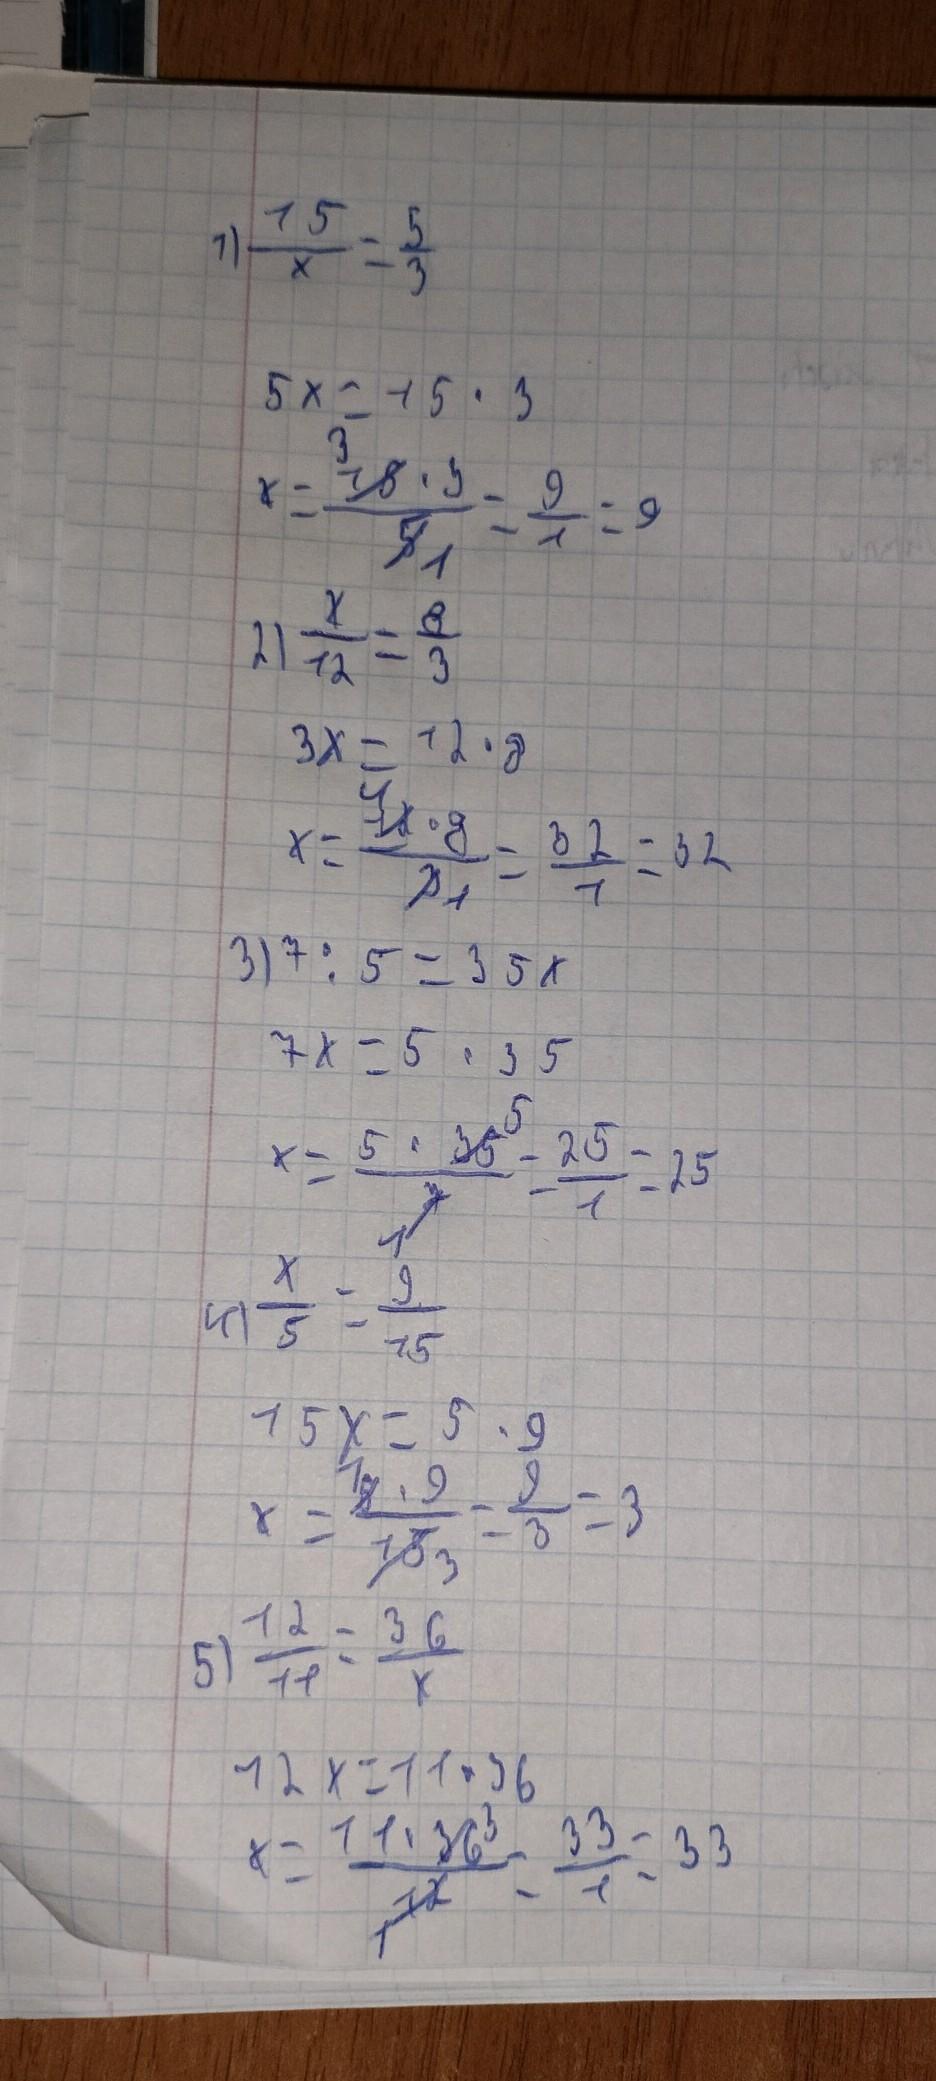 1) 15/x = 5/3
5x = 15 · 3
x = 15 · 3/5 = 9/1 = 9
3
1
2) x/12 = 8/3
3x = 12 · 8
x = 12 · 8/3 = 32/1 = 32
4
1
3) 7 : 5 = 35x
7x = 5 · 35
x = 5 · 35/7 = 25/1 = 25
5
1
4) x/5 = 9/15
15x = 5 · 9
x = 5 · 9/15 = 9/3 = 3
1
3
5) 12/11 = 36/x
12x = 11 · 36
x = 11 · 36/12 = 33/1 = 33
3
1